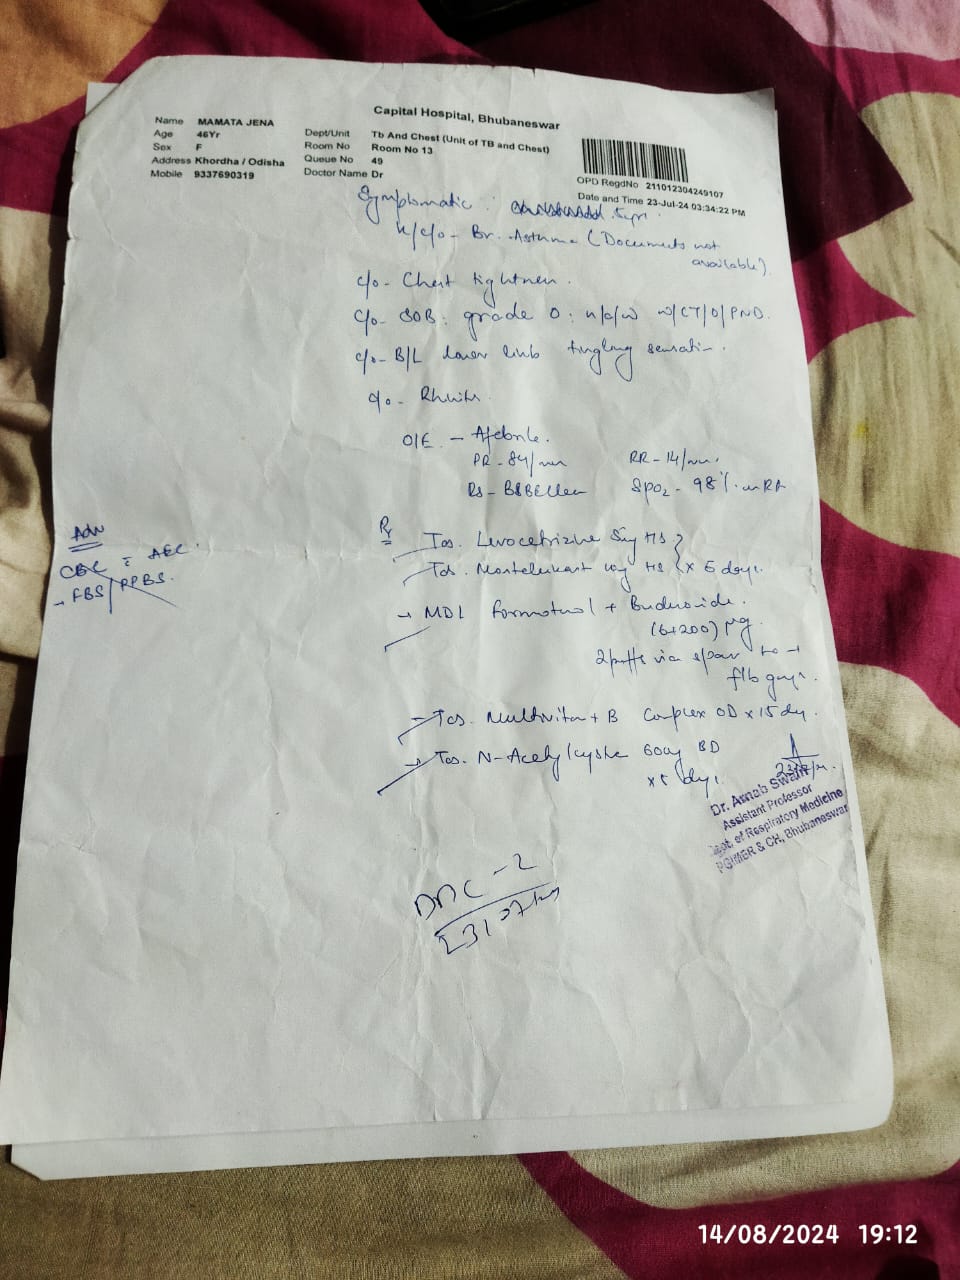 Capital Hospital, Bhubaneswar
Name MAMATA JENA
Age 46Yr
Sex F
Address Khordha / Odisha
Mobile 9337690319
Dept/Unit Tb And Chest (Unit of TB and Chest)
Room No Room No 13
Queue No 49
Doctor Name Dr
OPD RegdNo 211012304249107
Date and Time 23-Jul-24 03:34:22 PM
Symptomatic : 5yr.
k/c/o - Br. Asthma (Documents not
available)
c/o - Chest tightness.
c/o - SOB : grade 0 : n/c/w w/CT/O/PND.
c/o - B/L lower limb tingling sensation.
c/o - Rhinitis.
O/E - Afebrile.
PR - 84/min RR - 14/min.
RS - SPO2 - 98% on RA
Adv
CBC AEC.
- FBS/PPBS.
Rx
Tab. Levocetrizine 5mg HS
Tab. Montelukast 10mg HS } x 5 days.
→ MDI formoterol + Budesonide.
(6+200) μg.
2 puffs via spacer
f/b gargle.
→ Tab. Multivitamin + B Complex OD x 15 day.
→ Tab. N-Acetylcysteine 600mg BD
x 5 days.
Dr. Arnab Swain
Assistant Professor
Dept. of Respiratory Medicine
PGIMER & CH, Bhubaneswar
DDC - 2
14/08/2024 19:12